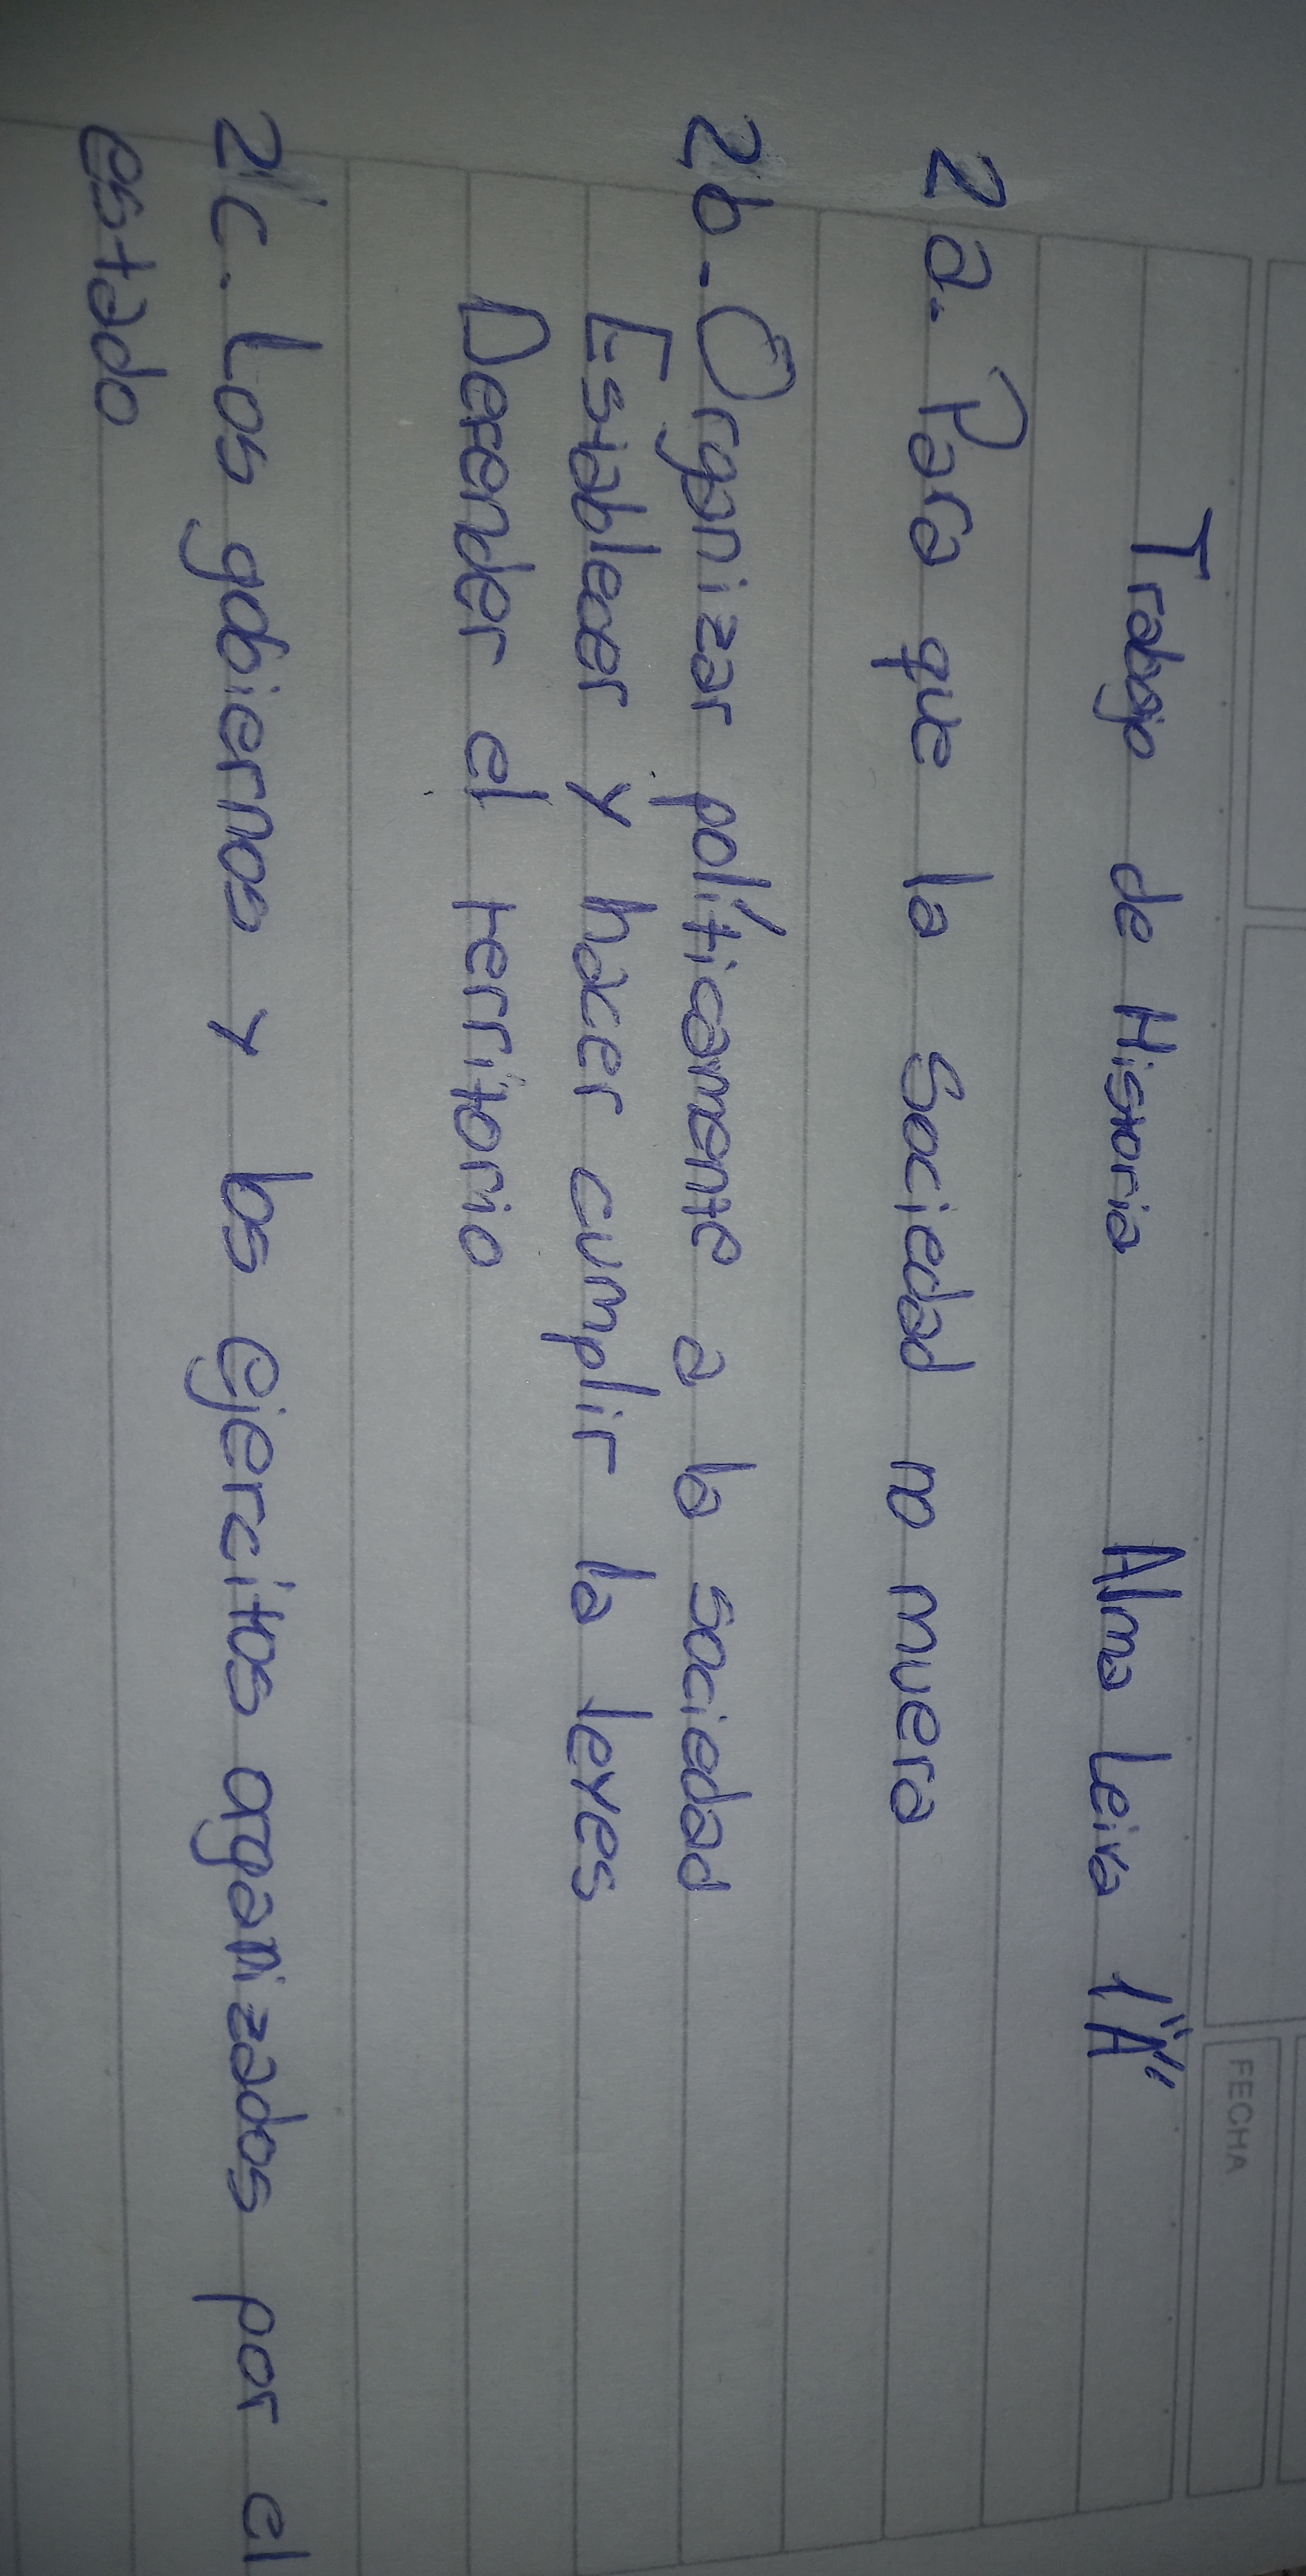 FECHA
Trabajo de Historia Alma Leiva 1"A"
2 a. Para que la sociedad no muera
2b. Organizar políticamente a la sociedad
Establecer y hacer cumplir la leyes
Defender el territorio
2c. Los gobiernos y los ejercitos organizados por el
estado